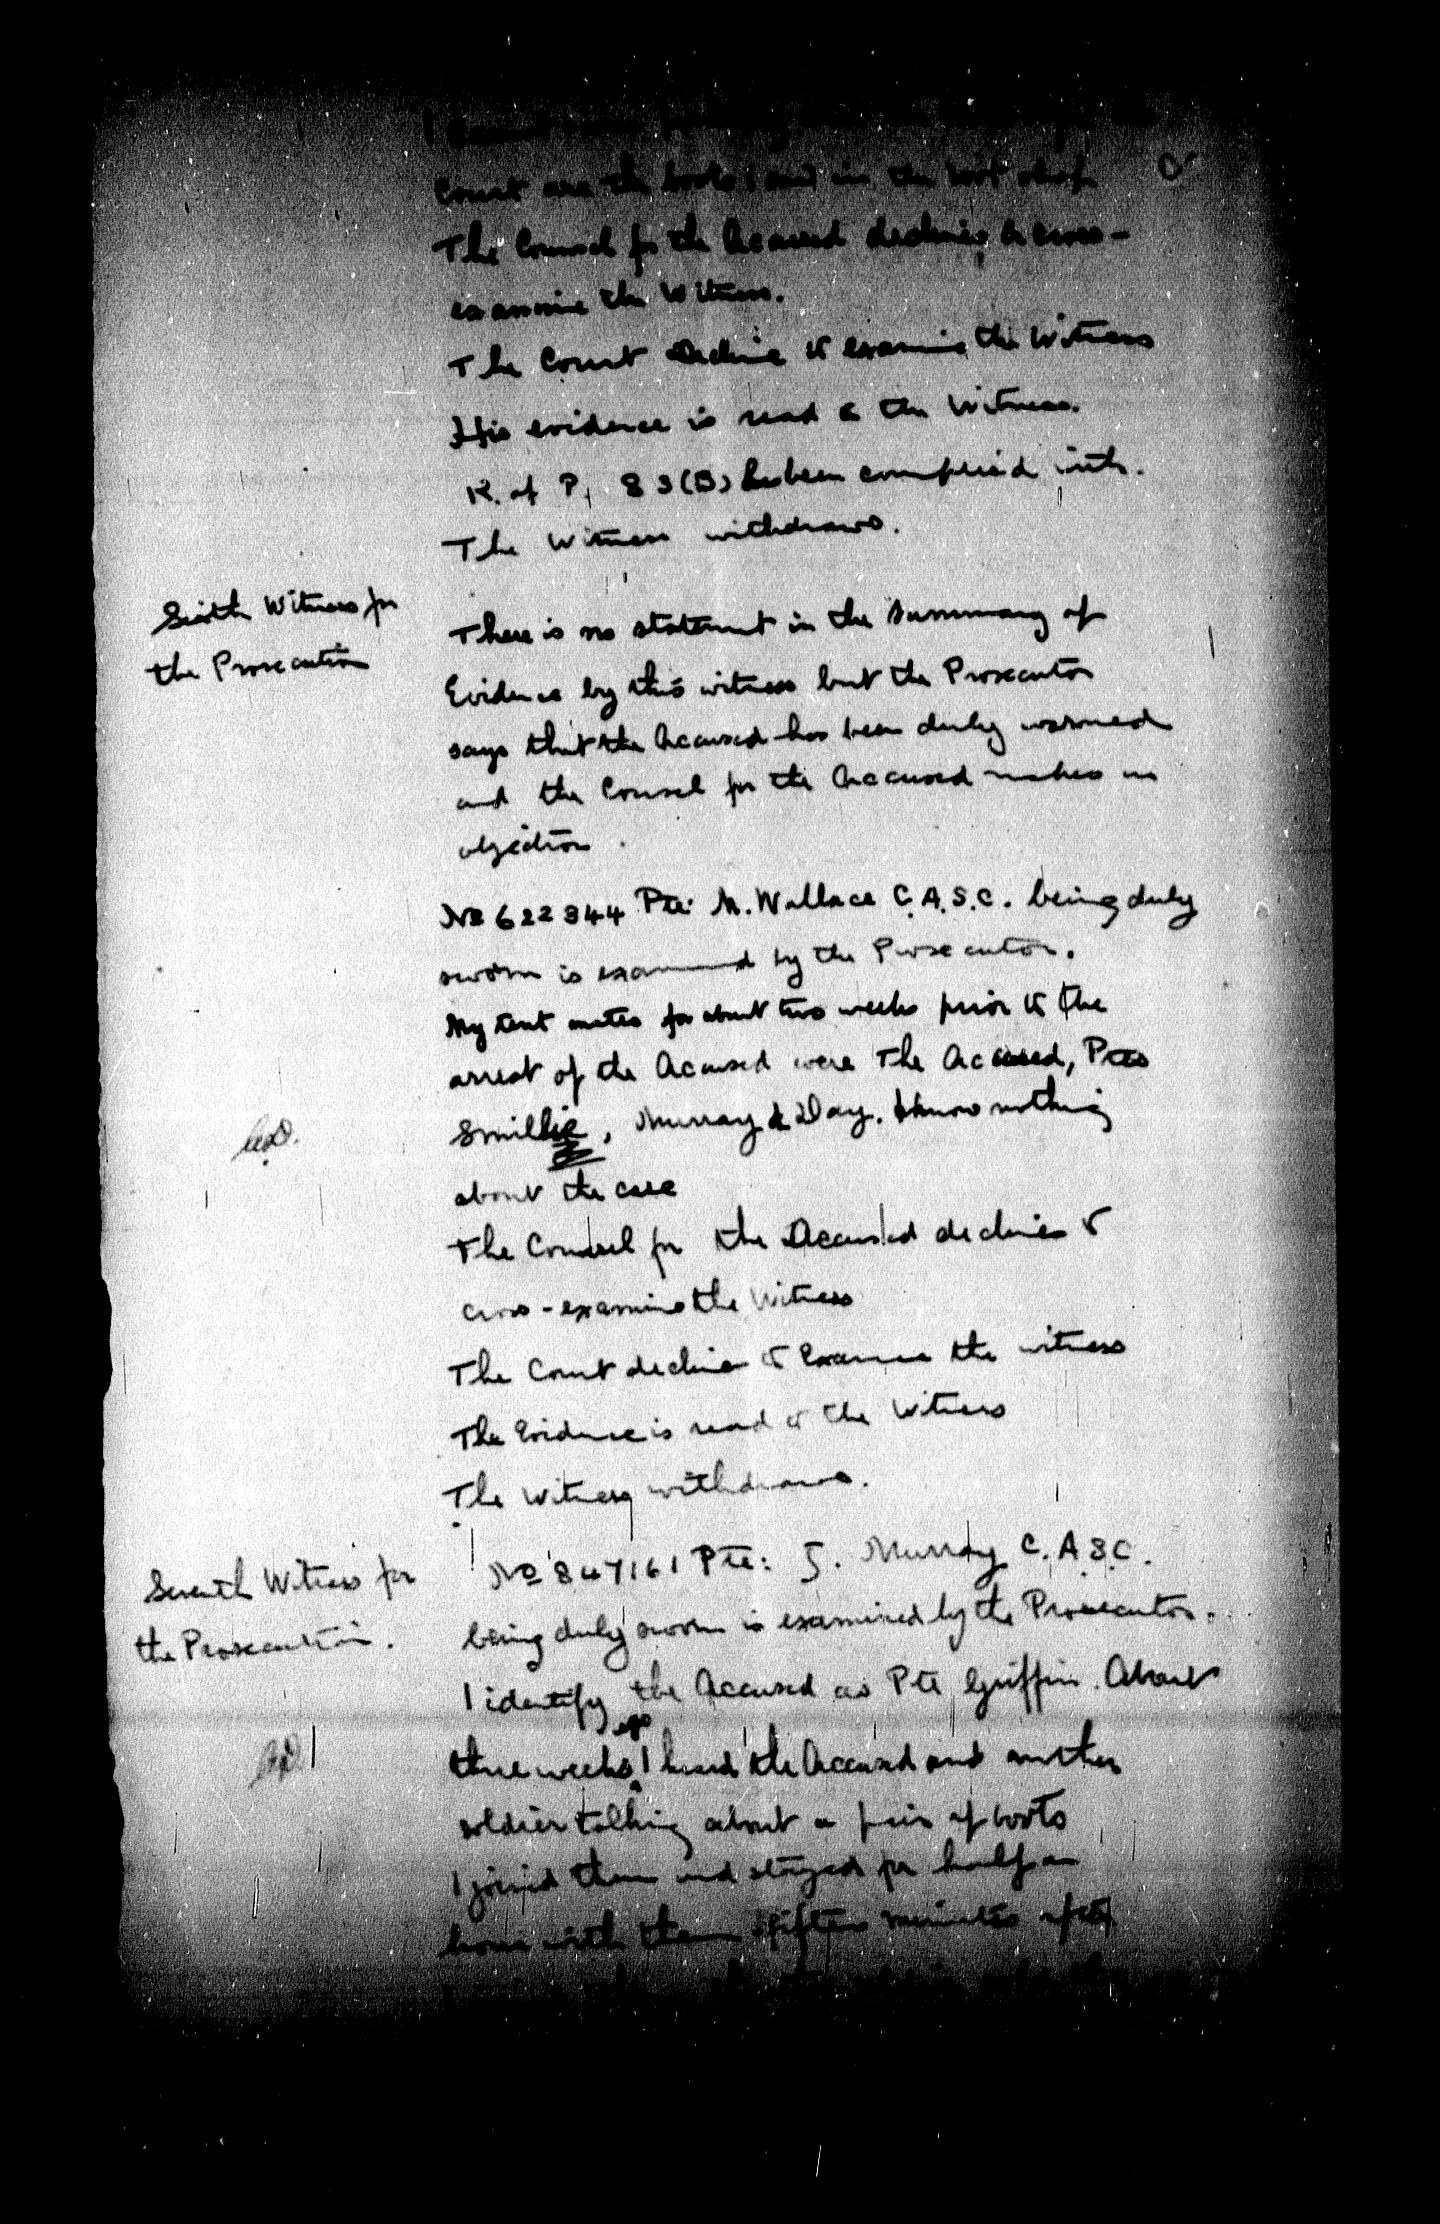 Court are the boots I sold in the boot shop
The Counsel for the Accused declines to cross-
examine the Witness.
The Court decline to examine the Witness
His evidence is read to the Witness.
R. of P. 83(B) has been complied with.
The Witness withdraws.
Sixth Witness for
the Prosecution
There is no statement in the Summary of
Evidence by this witness but the Prosecutor
says that the Accused has been duly warned
and the Counsel for the Accused makes no
objection.
No 622844 Pte: M. Wallace C.A.S.C. being duly
sworn is examined by the Prosecutor.
My tent mates for about two weeks prior to the
arrest of the Accused were The Accused, Ptes
Smillie, Murray & Day. I know nothing
about the case
The Counsel for the Accused declines to
cross-examine the Witness
The Court decline to Examine the witness
The Evidence is read to the Witness
The Witness withdraws.
Seventh Witness for
the Prosecution.
No 847161 Pte: J. Murray C.A.S.C.
being duly sworn is examined by the Prosecutor.
I identify the Accused as Pte Griffin. About
three weeks ago I heard the Accused and another
soldier talking about a pair of boots
I joined them and stayed for half an
hour with them fifteen minutes after